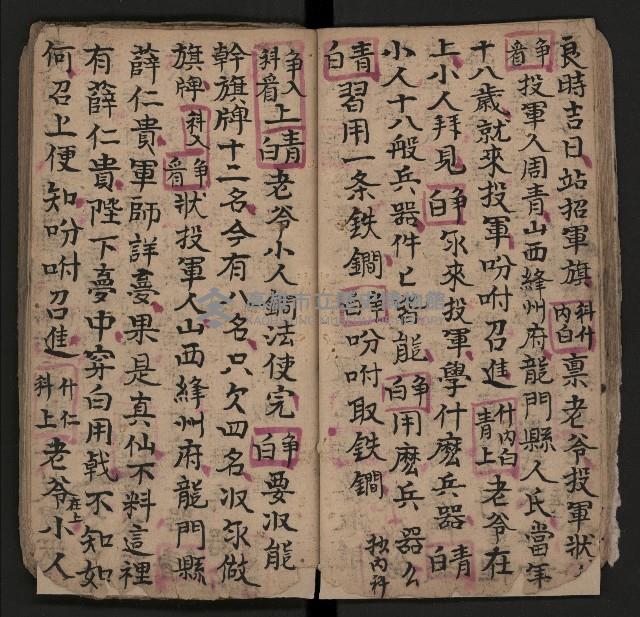 良時吉日站招軍旗 科什內白 稟老爷投軍狀
争看 投軍人周青山西絳州府龍門縣人氏當年
十八歲就來投軍吩咐召進 什內白青上 老爷在
上小人拜見 争白 你來投軍學什麽兵器 青白
小人十八般兵器件匕習能 争白 用麽兵器
青白 習用一条鉄鐧 争白 吩咐取鉄鐧
争入科看上青白 老爷小人鐧法使完 争白 要収能
幹旗牌十二名今有八名只欠四名収你做
旗牌 科入争看 狀投軍人山西絳州府龍門縣
薛仁貴軍師詳夢果是真仙不料這裡
有薛仁貴陛下夢中穿白用戟不知如
何召上便知吩咐召進 什仁科上 老爷在上小人